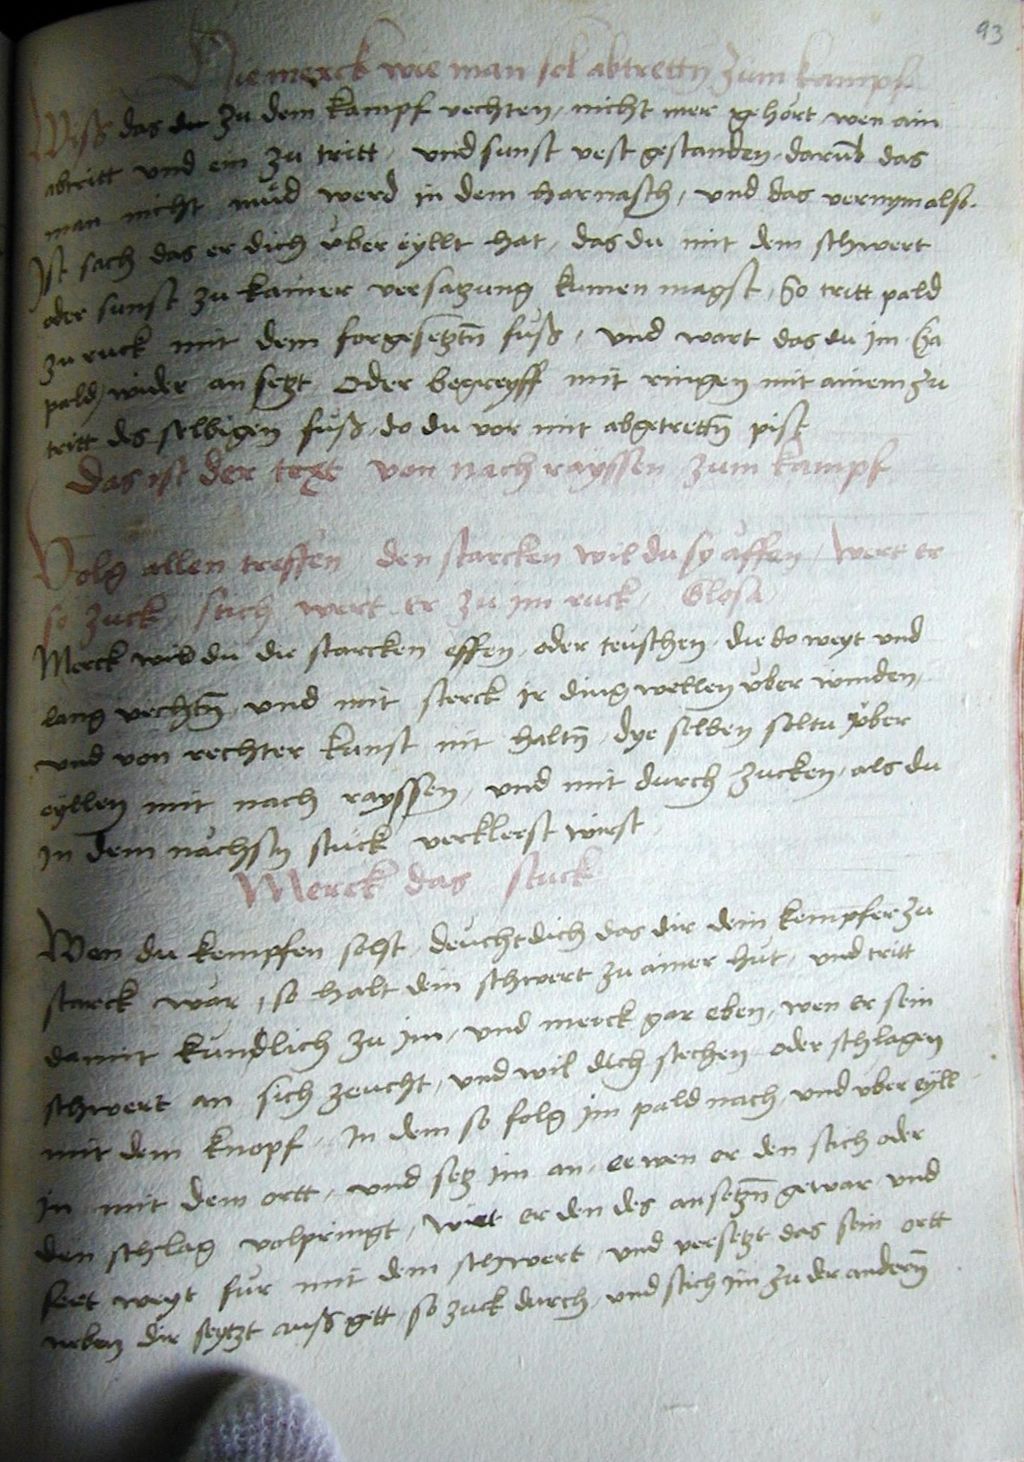 93
Hie merck wie man sol abtrettn̄ zum kampf
Wiß das du zu dem kampf vechten / nicht mer gehort / wen ain
abtritt vnd ein zu tritt / vnd sunst vest gestanden / darūb das
man nicht müd werd in dem harnasch / vnd das vernym also.
Ist sach das er dich vber eyllt hat / das du mit dem schwert
oder sunst zu kainer versatzung kumen magst / So tritt pald
zu ruck mit dem forgesetztn̄ fuß / vnd wart das du im / Sa
pald / wider an setzt / Oder begreyff mit ringen mit ainem zu
tritt des selbigen fuß / do du vor mit abgetrettn̄ pist
Das ist der text von nach rayssen zum kampf
Volg allen treffen den starcken wil du sy äffen / Wert er
so zuck / stich wert er zu im ruck / Glosa
Merck wild du die starcken effen / oder teuschen / die do weyt vnd
lang vechtn̄ / vnd mit sterck ir ding wellen vber winden /
vnd von rechter kunst nit haltn̄ / dye selben soltu vber
eyllen mit nach rayssen / vnd mit durch zucken / als du
in dem nächsn stuck verklerst wirst /
Merck das stuck
Wen du kempfen solst / deucht dich das dir dein kempfer zu
starck wär / so halt dein schwert zu ainer hut / vnd tritt
damit kundlich zu im / vnd merck gar eben / wen er sein
schwert an sich zeucht / vnd wil dich stechen oder schlagen
mit dem knopf / In dem so folg im pald nach / vnd vber eyll
in mit dem ortt / vnd setz im an / ee wen er den stich oder
den schlag volpringt / Wirt er den des ansetzn̄ gewar vnd
fert weyt für mit dem schwert / vnd versetzt das sein ortt
neben dir seytzt auß gett / so zuck durch / vnd stich im zu der andern̄